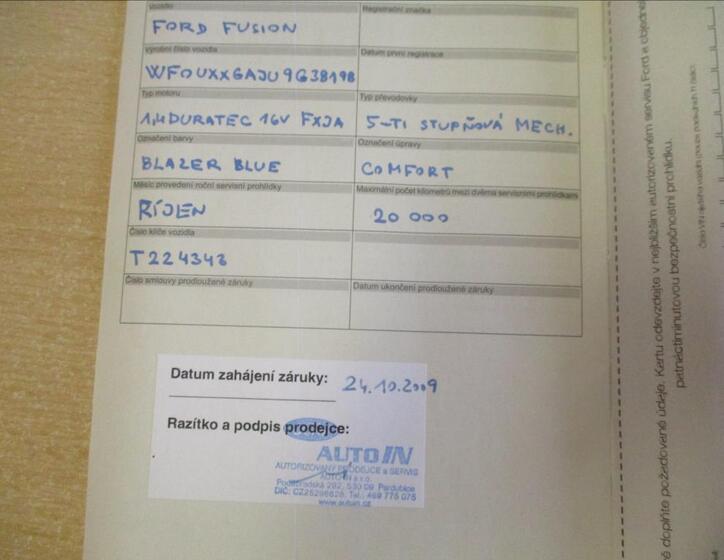 Vozidlo
Registrační značka
FORD FUSION
Výrobní číslo vozidla
Datum první registrace
WF0UXXGAJU9G38198
Typ motoru
Typ převodovky
1,4 DURATEC 16V FXJA
5-TI STUPŇOVÁ MECH.
Označení barvy
Označení úpravy
BLAZER BLUE
COMFORT
Měsíc provedení roční servisní prohlídky
Maximální počet kilometrů mezi dvěma servisními prohlídkami
ŘÍJEN
20 000
Číslo klíče vozidla
T224343
Číslo smlouvy prodloužené záruky
Datum ukončení prodloužené záruky
Datum zahájení záruky: 24.10.2009
Razítko a podpis prodejce:
AUTO IN
AUTORIZOVANÝ PRODEJCE a SERVIS
AUTO IN s.r.o.
Poděbradská 292, 530 09 Pardubice
DIČ: CZ25298828, Tel.: 469 775 075
www.autoin.cz
é doplňte požadované údaje. Kartu odevzdejte v nejbližším autorizovaném servisu Ford a objednej
patnáctiminutovou bezpečnostní prohlídku.